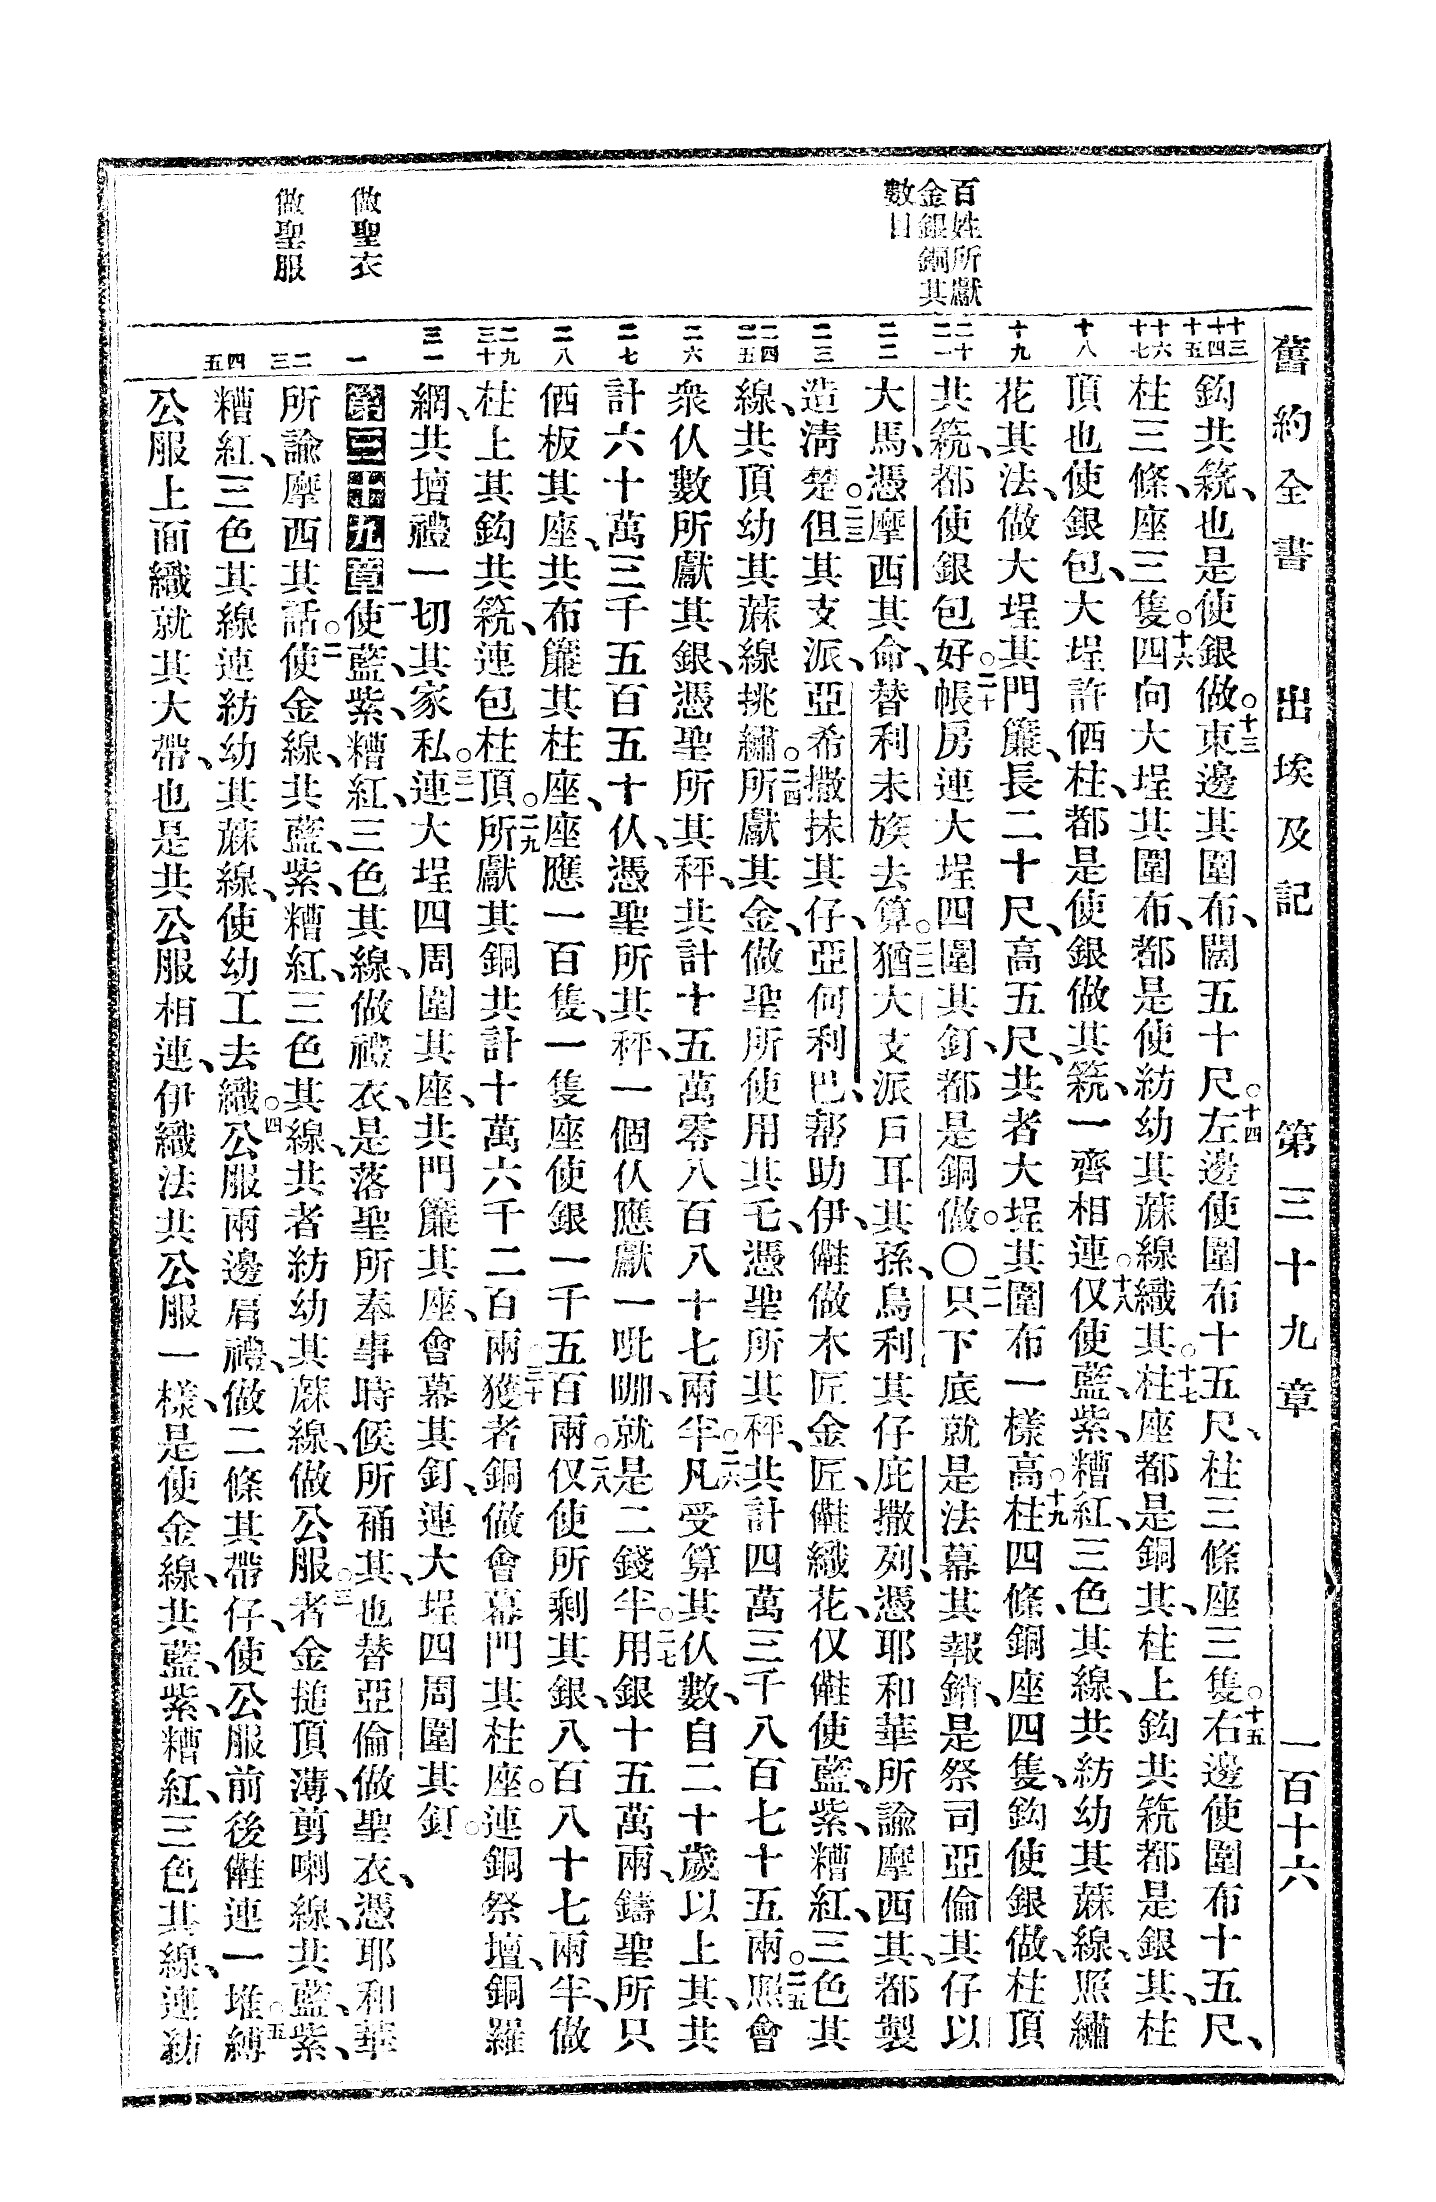 舊約全書 出埃及記 第三十九章 一百十六
百姓所獻
金銀銅其
數目
做聖衣
做聖服
十三 十四 十五
十六 十七
十八
十九
二十 二一
二二
二三
二四 二五
二六
二七
二八
二九 三十
三一
一
二 三
四 五
鈎共䇯、也是使銀做。十三東邊其圍布、闊五十尺。十四左邊使圍布十五尺、柱三條、座三隻。十五右邊使圍布十五尺、
柱三條、座三隻。十六四向大埕其圍布、都是使紡幼其蔴線織其。十七柱座都是銅其、柱上鈎共䇯都是銀其、柱
頂也使銀包、大埕許個柱、都是使銀做其䇯、一齊相連。十八仅使藍、紫、糟紅、三色其線、共紡幼其蔴線、照繡
花其法、做大埕其門簾、長二十尺、高五尺、共者大埕其圍布一樣高。十九柱四條、銅座四隻、鈎使銀做、柱頂
共䇯、都使銀包好。二十帳房連大埕四圍其釘、都是銅做。〇二一只下底就是法幕其報銷、是祭司亞倫其仔以
大馬、憑摩西其命、替利未族去算。二二猶大支派戶耳其孫、烏利其仔庇撒列、憑耶和華所諭摩西其、都製
造淸楚。二三但其支派、亞希撒抹其仔、亞何利巴、幫助伊、儺做木匠、金匠、儺織花、仅儺使藍、紫、糟紅、三色其
線、共頂幼其蔴線挑繡。二四所獻其金、做聖所使用其乇、憑聖所其秤、共計四萬三千八百七十五兩。二五照會
衆伩數所獻其銀、憑聖所其秤、共計十五萬零八百八十七兩半。二六凡受算其伩數、自二十歲以上其、共
計六十萬三千五百五十伩、憑聖所其秤、一個伩應獻一吡㗉、就是二錢半。二七用銀十五萬兩、鑄聖所只
個板其座、共布簾其柱座、座應一百隻、一隻座使銀一千五百兩。二八仅使所剩其銀、八百八十七兩半、做
柱上其鈎共䇯、連包柱頂。二九所獻其銅共計十萬六千二百兩。三十獲者銅做會幕門其柱座。連銅祭壇、銅羅
網、共壇禮一切其家私。三一連大埕四周圍其座、共門簾其座、會幕其釘、連大埕四周圍其釘。
第三十九章一使藍、紫、糟紅、三色其線、做禮衣、是落聖所奉事時候所䘄其、也替亞倫做聖衣、憑耶和華
所諭摩西其話。二使金線、共藍、紫、糟紅、三色其線、共者紡幼其蔴線、做公服。三者金搥頂薄、剪喇線、共藍、紫、
糟紅、三色其線連紡幼其蔴線、使幼工去織。四公服兩邊肩禮、做二條其帶仔、使公服前後儺連一堆縛。五
公服上面織就其大帶、也是共公服相連、伊織法共公服一樣、是使金線、共藍、紫、糟紅、三色其線、連紡